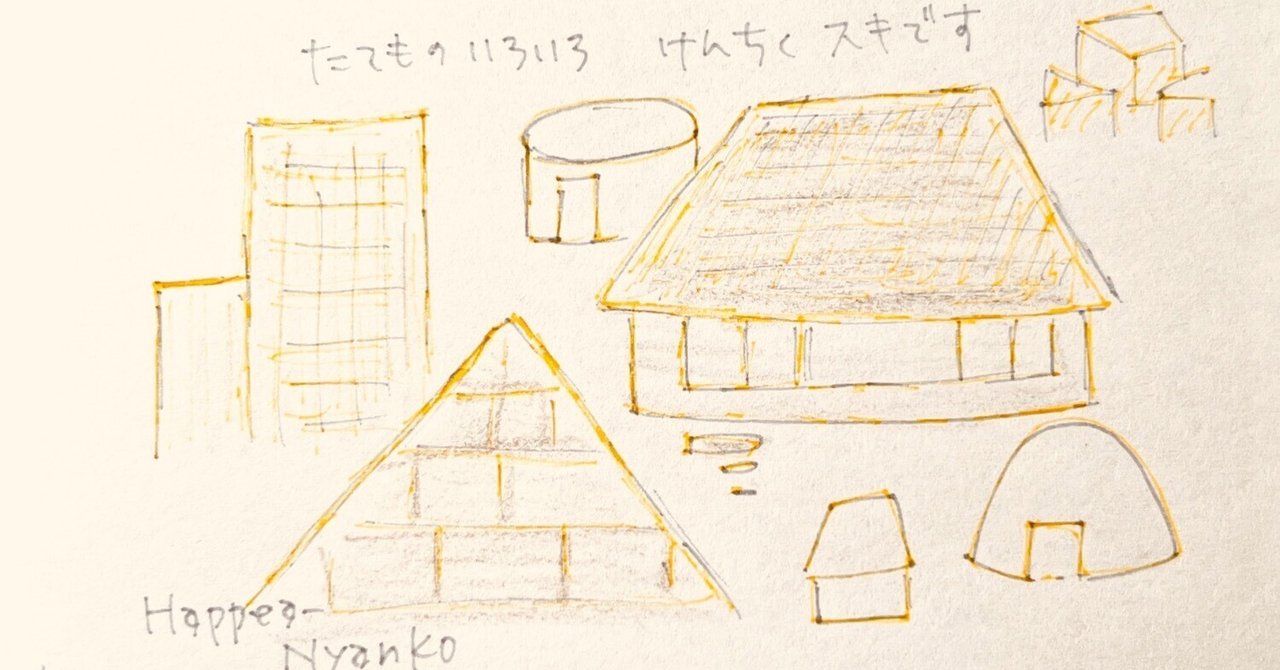 たてもの いろいろ けんちく スキです
Happea-
Nyanko